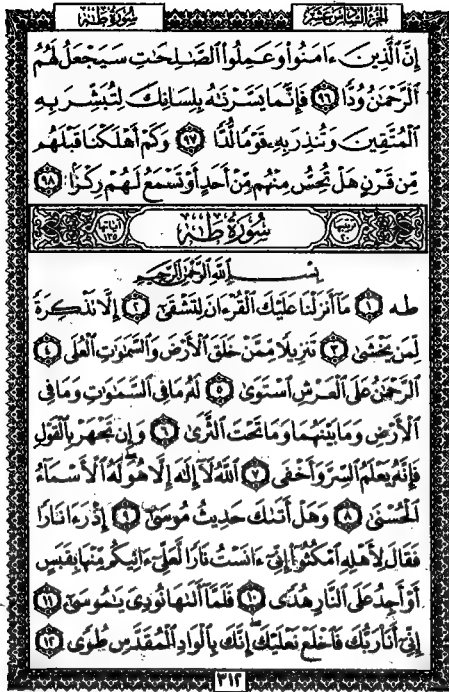 الجزء السادس عشر
سورة طه
إِنَّ ٱلَّذِينَ ءَامَنُوا۟ وَعَمِلُوا۟ ٱلصَّٰلِحَٰتِ سَيَجْعَلُ لَهُمُ
ٱلرَّحْمَٰنُ وُدًّا ٩٦ فَإِنَّمَا يَسَّرْنَٰهُ بِلِسَانِكَ لِتُبَشِّرَ بِهِ
ٱلْمُتَّقِينَ وَتُنذِرَ بِهِۦ قَوْمًا لُّدًّا ٩٧ وَكَمْ أَهْلَكْنَا قَبْلَهُم
مِّن قَرْنٍ هَلْ تُحِسُّ مِنْهُم مِّنْ أَحَدٍ أَوْ تَسْمَعُ لَهُمْ رِكْزًۢا ٩٨
ترتيبها ٢٠ سُورَةُ طٰهٰ آياتها ١٣٥
بِسْمِ ٱللَّهِ ٱلرَّحْمَٰنِ ٱلرَّحِيمِ
طه ١ مَآ أَنزَلْنَا عَلَيْكَ ٱلْقُرْءَانَ لِتَشْقَىٰٓ ٢ إِلَّا تَذْكِرَةً
لِّمَن يَخْشَىٰ ٣ تَنزِيلًا مِّمَّنْ خَلَقَ ٱلْأَرْضَ وَٱلسَّمَٰوَٰتِ ٱلْعُلَى ٤
ٱلرَّحْمَٰنُ عَلَى ٱلْعَرْشِ ٱسْتَوَىٰ ٥ لَهُۥ مَا فِى ٱلسَّمَٰوَٰتِ وَمَا فِى
ٱلْأَرْضِ وَمَا بَيْنَهُمَا وَمَا تَحْتَ ٱلثَّرَىٰ ٦ وَإِن تَجْهَرْ بِٱلْقَوْلِ
فَإِنَّهُۥ يَعْلَمُ ٱلسِّرَّ وَأَخْفَى ٧ ٱللَّهُ لَآ إِلَٰهَ إِلَّا هُوَ لَهُ ٱلْأَسْمَآءُ
ٱلْحُسْنَىٰ ٨ وَهَلْ أَتَىٰكَ حَدِيثُ مُوسَىٰٓ ٩ إِذْ رَءَا نَارًا
فَقَالَ لِأَهْلِهِ ٱمْكُثُوٓا۟ إِنِّىٓ ءَانَسْتُ نَارًا لَّعَلِّىٓ ءَاتِيكُم مِّنْهَا بِقَبَسٍ
أَوْ أَجِدُ عَلَى ٱلنَّارِ هُدًى ١٠ فَلَمَّآ أَتَىٰهَا نُودِىَ يَٰمُوسَىٰٓ ١١
إِنِّىٓ أَنَا۠ رَبُّكَ فَٱخْلَعْ نَعْلَيْكَ إِنَّكَ بِٱلْوَادِ ٱلْمُقَدَّسِ طُوًى ١٢
٣١٢